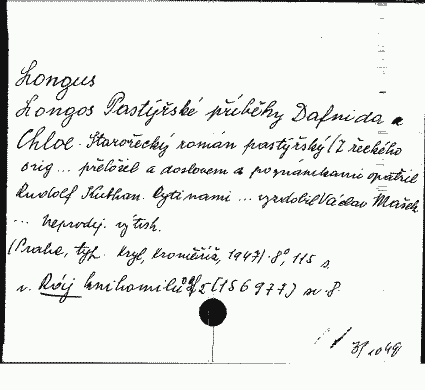 Longus
Longos Pastýřské příběhy Dafnida a
Chloe. Starořecký román pastýřský/Z řeckého
orig... přeložil a doslovem a poznámkami opatřil
Rudolf Kuthan. Lyti nami ... vyzdobil Václav Mašek
... Neprodej. výtisk.
(Praha, typ. Kryl, Kroměříž, 1947). 8°, 115 s.
v. Ráj knihomilů (156977) sv. 8.